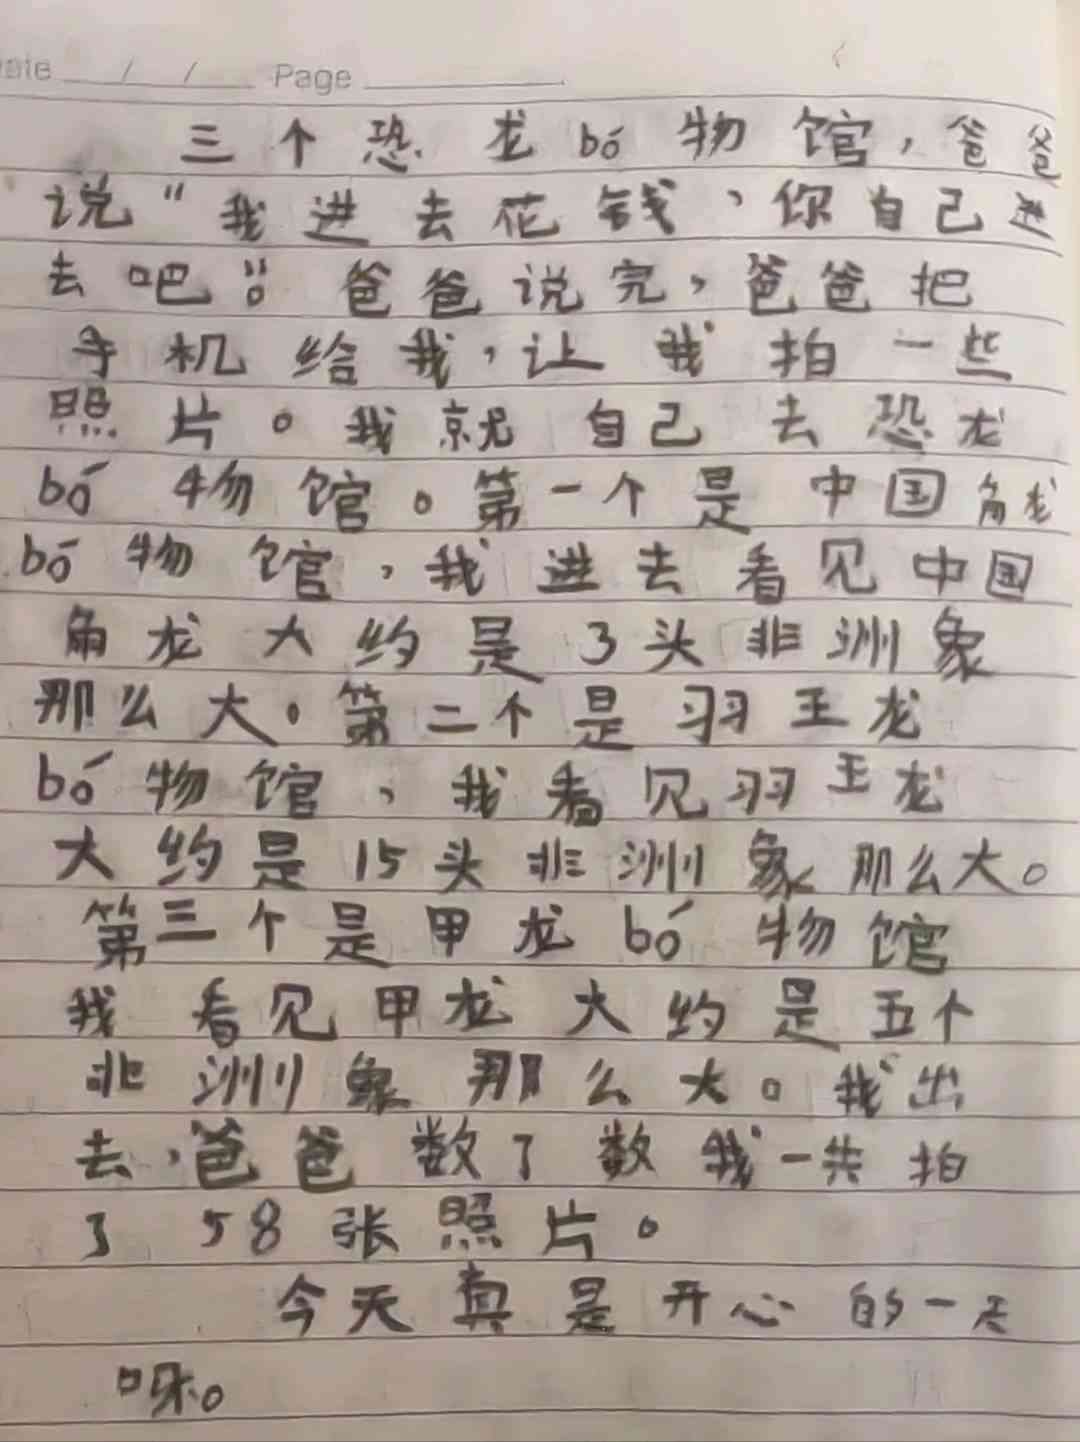 Date / / Page
三个恐龙bó物馆，爸爸
说“我进去花钱，你自己进
去吧。”爸爸说完，爸爸把
手机给我，让我拍一些
照片。我就自己去恐龙
bó物馆。第一个是中国角龙
bó物馆，我进去看见中国
角龙大约是3头非洲象
那么大。第二个是羽王龙
bó物馆，我看见羽王龙
大约是15头非洲象那么大。
第三个是甲龙bó物馆
我看见甲龙大约是五个
非洲象那么大。我出
去，爸爸数了数我一共拍
了58张照片。
今天真是开心的一天
呀。